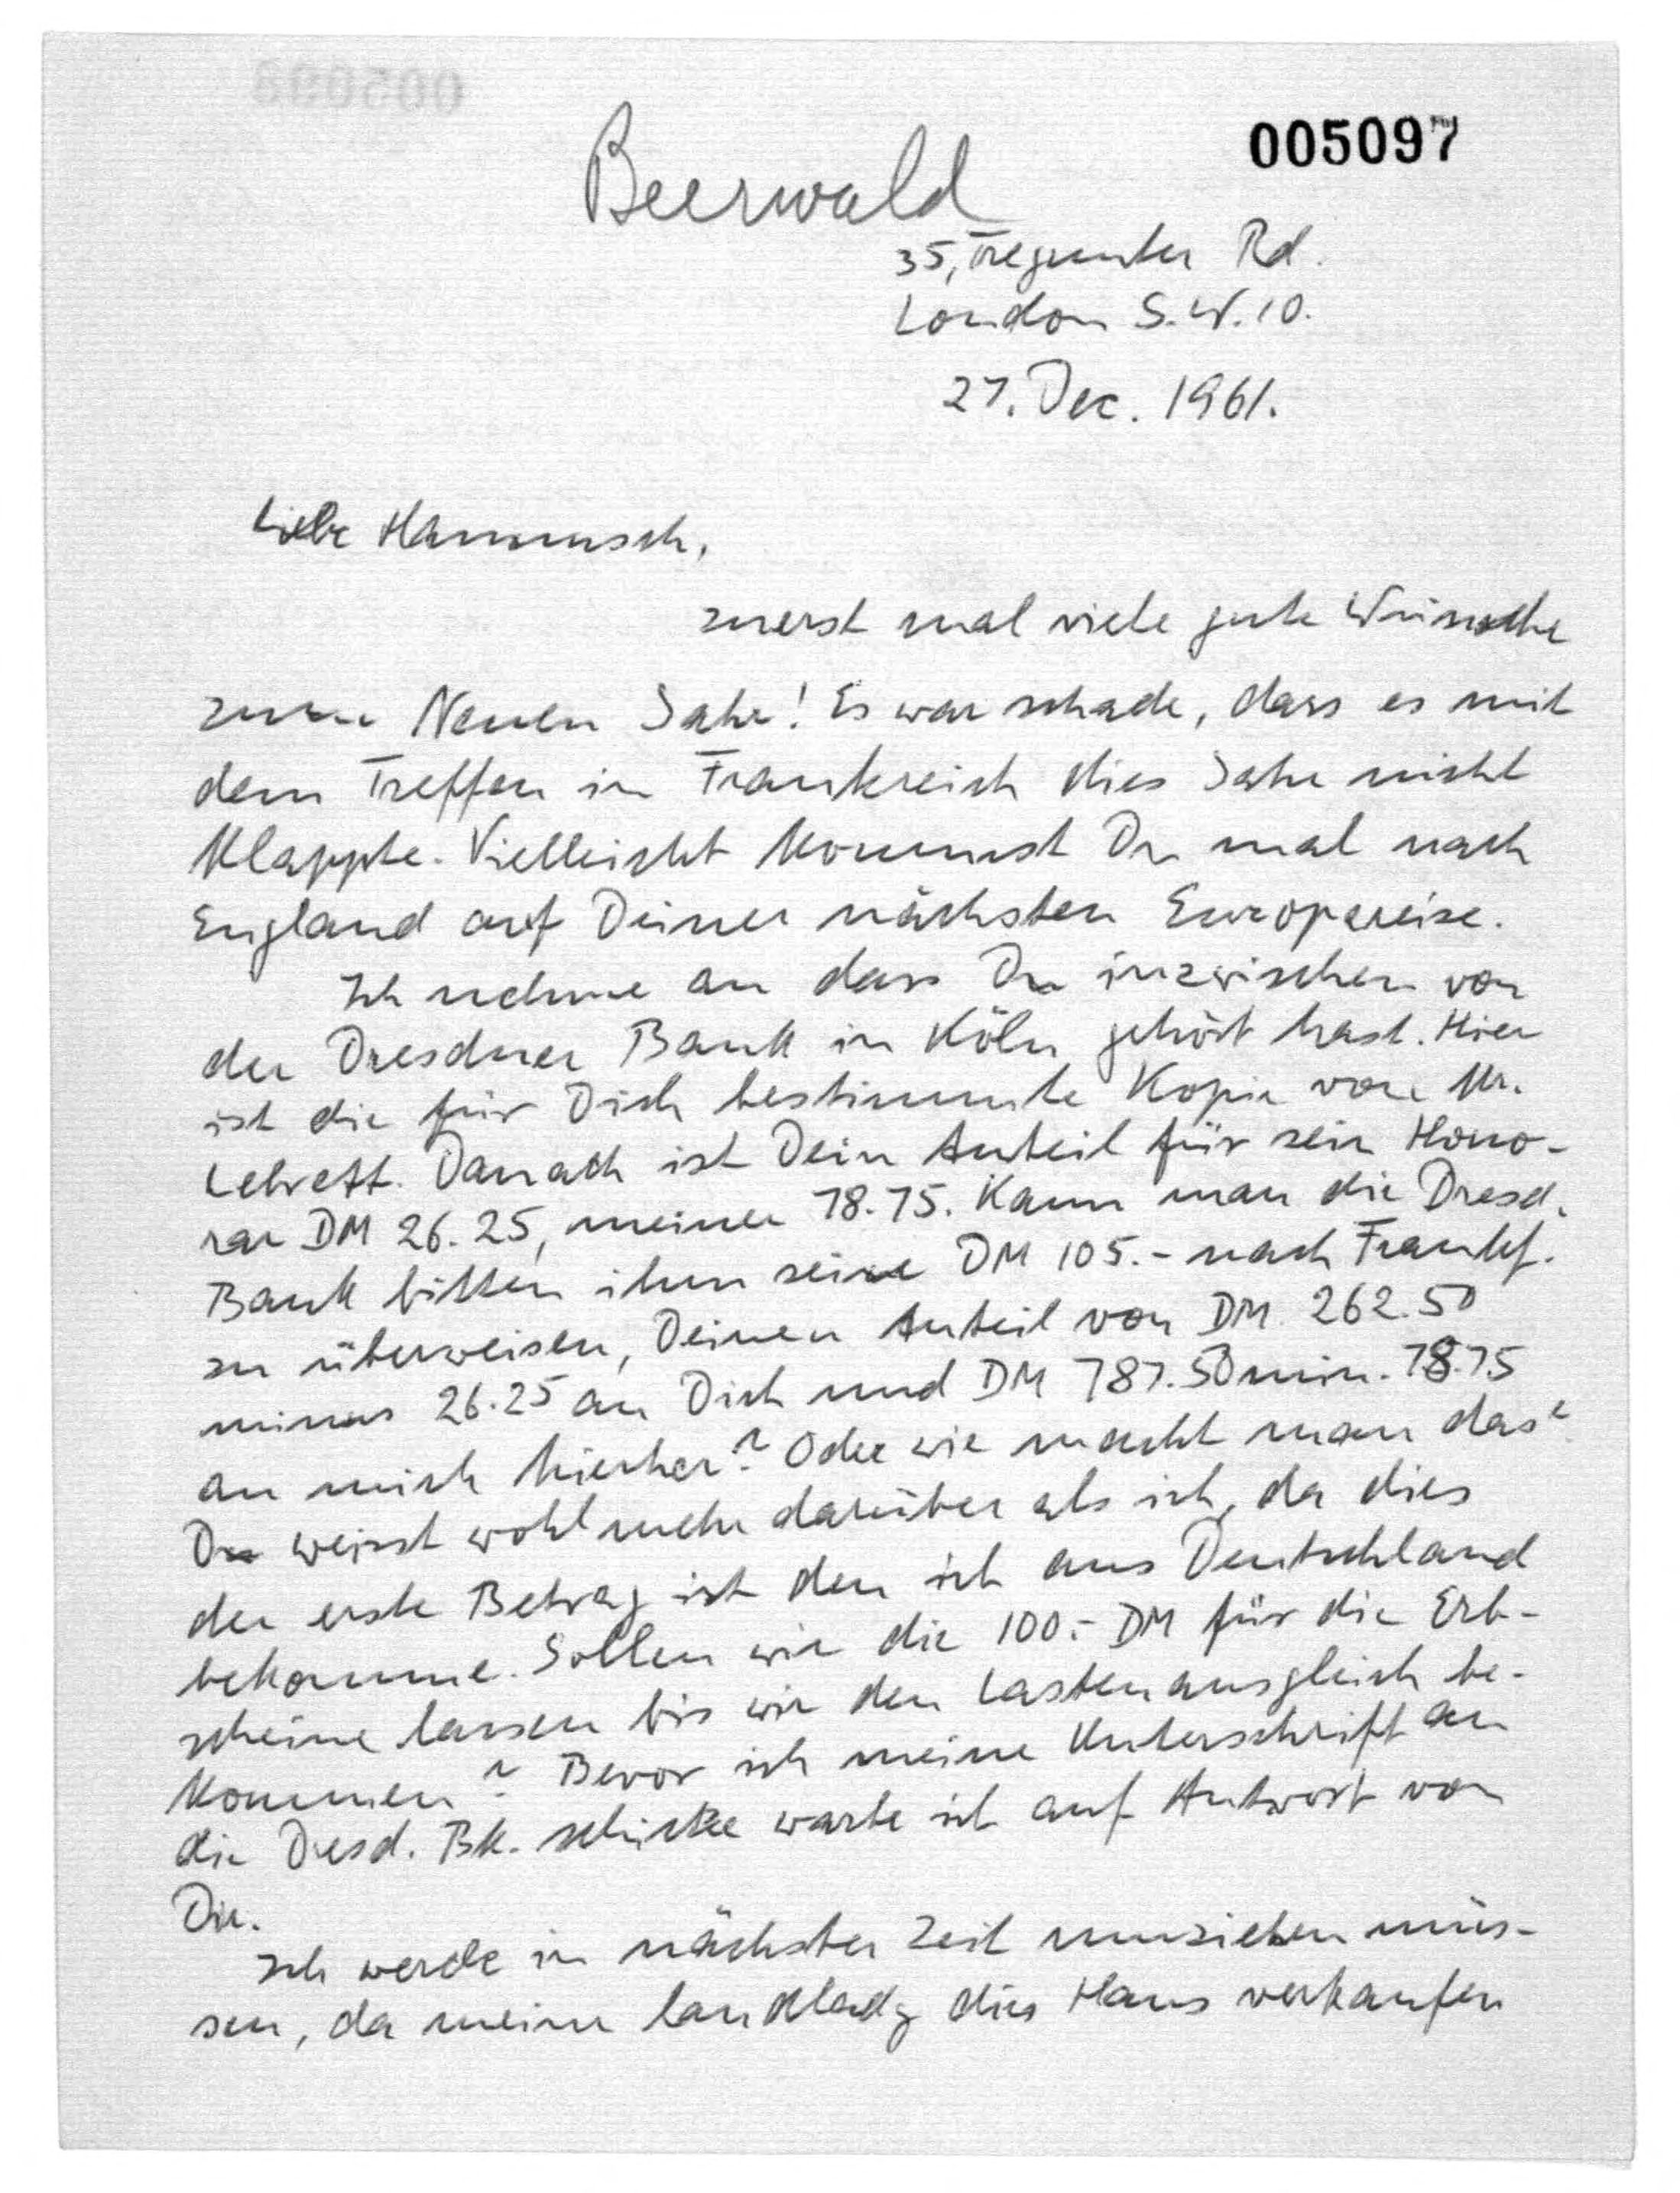 005097
Beerwald
35, Tregunter Rd.
London S.W.10.
27. Dec. 1961.
Liebe Hannusch,
zuerst mal viele gute Wünsche
zum Neuen Jahr! Es war schade, dass es mit
dem Treffen in Frankreich dies Jahr nicht
klappte. Vielleicht kommst Du mal nach
England auf Deiner nächsten Europareise.
Ich nehme an dass Du inzwischen von
der Dresdner Bank in Köln gehört hast. Hier
ist die für Dich bestimmte Kopie von Mr.
Danach ist Dein Anteil für sein Hono-
rar DM 26.25, meiner 78.75. Kann man die Dresd.
Bank bitten ihm seine DM 105.- nach Frankf.
zu überweisen, Deinen Anteil von DM. 262.50
minus 26.25 an Dich und DM 787.50 min. 78.75
an mich hierher? Oder wie macht man das?
Du weisst wohl mehr darüber als ich, da dies
der erste Betrag ist den ich aus Deutschland
bekomme. Sollen wir die 100.- DM für die Erb-
scheine lassen bis wir den Lastenausgleich be-
kommen? Bevor ich meine Unterschrift an
die Dresd. Bk. schicke warte ich auf Antwort von
Dir.
Ich werde in nächster Zeit umziehen müs-
sen, da meine landlady dies Haus verkaufen